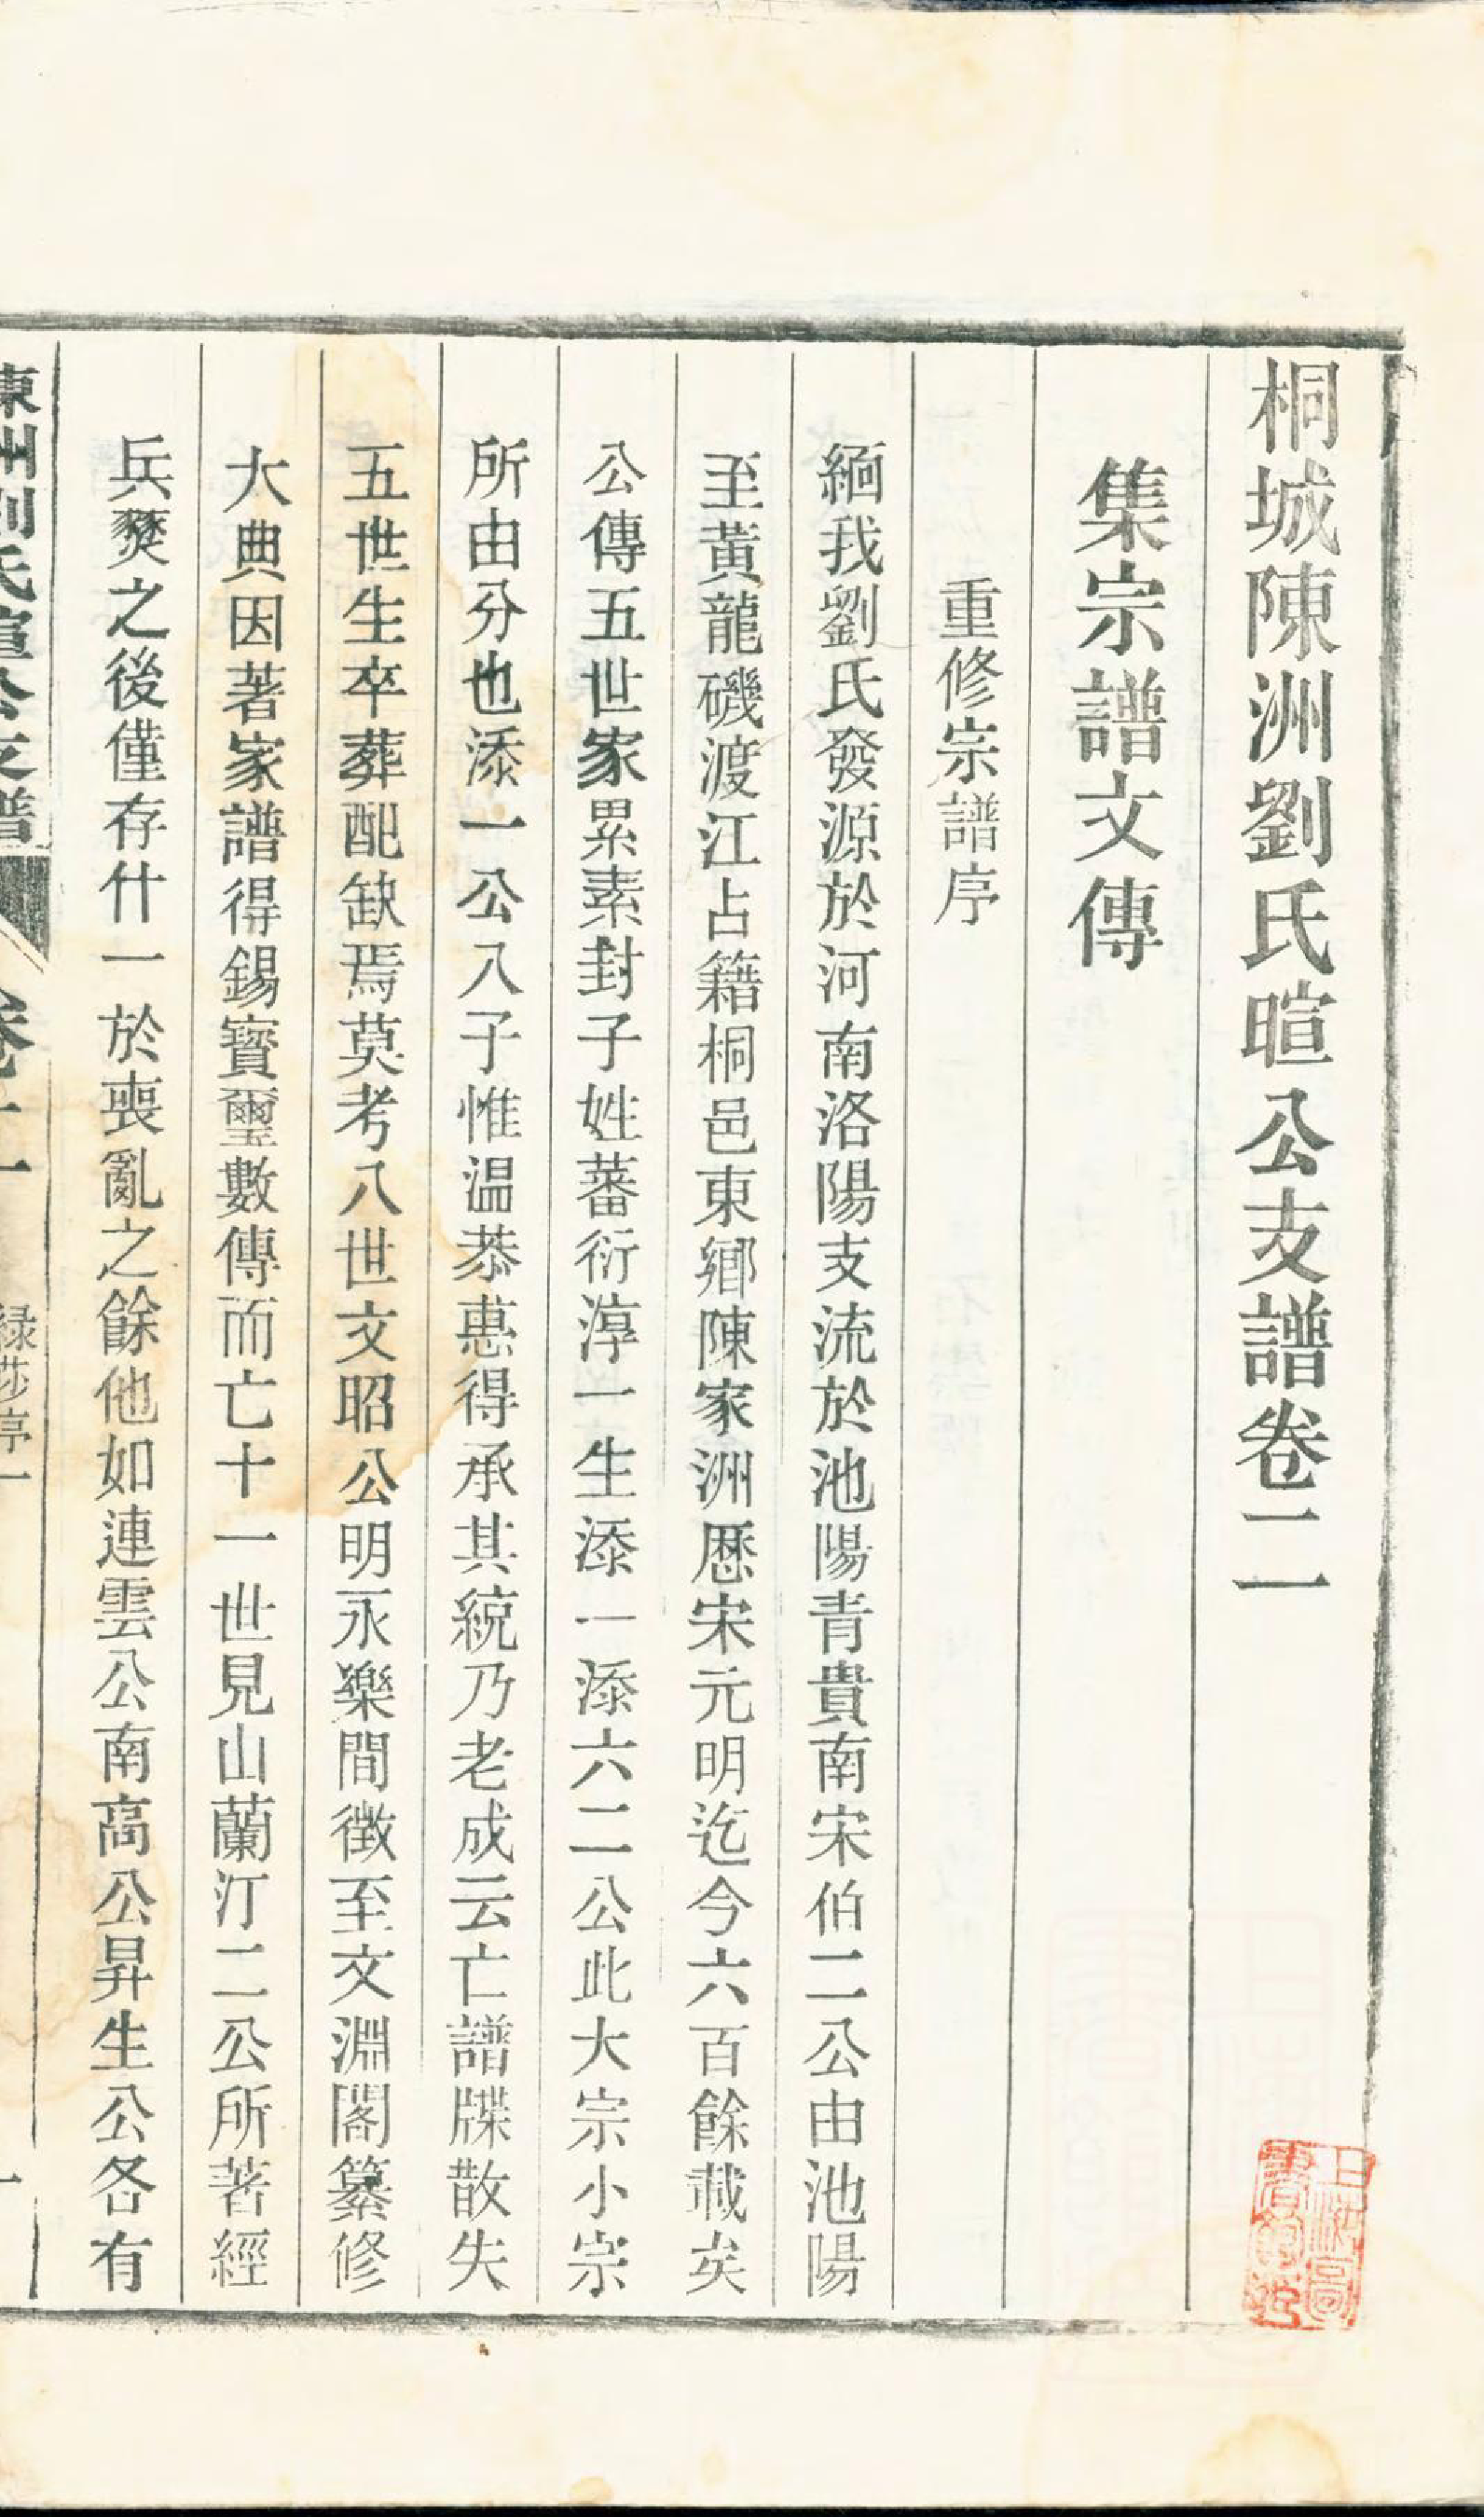 桐城陳洲劉氏暄公支譜卷二
集宗譜文傳
重修宗譜序
緬我劉氏發源於河南洛陽支流於池陽青貴南宋伯二公由池陽
至黃龍磯渡江占籍桐邑東鄉陳家洲歷宋元明迄今六百餘載矣
公傳五世家累素封子姓蕃衍淳一生添一添六二公此大宗小宗
所由分也添一公八子惟温恭惠得承其統乃老成云亡譜牒散失
五世生卒葬配缺焉莫考八世文昭公明永樂間徵至文淵閣纂修
大典因著家譜得錫寶璽數傳而亡十一世見山蘭汀二公所著經
兵燹之後僅存什一於喪亂之餘他如連雲公南高公昇生公各有
陳洲劉氏暄公支譜
卷二